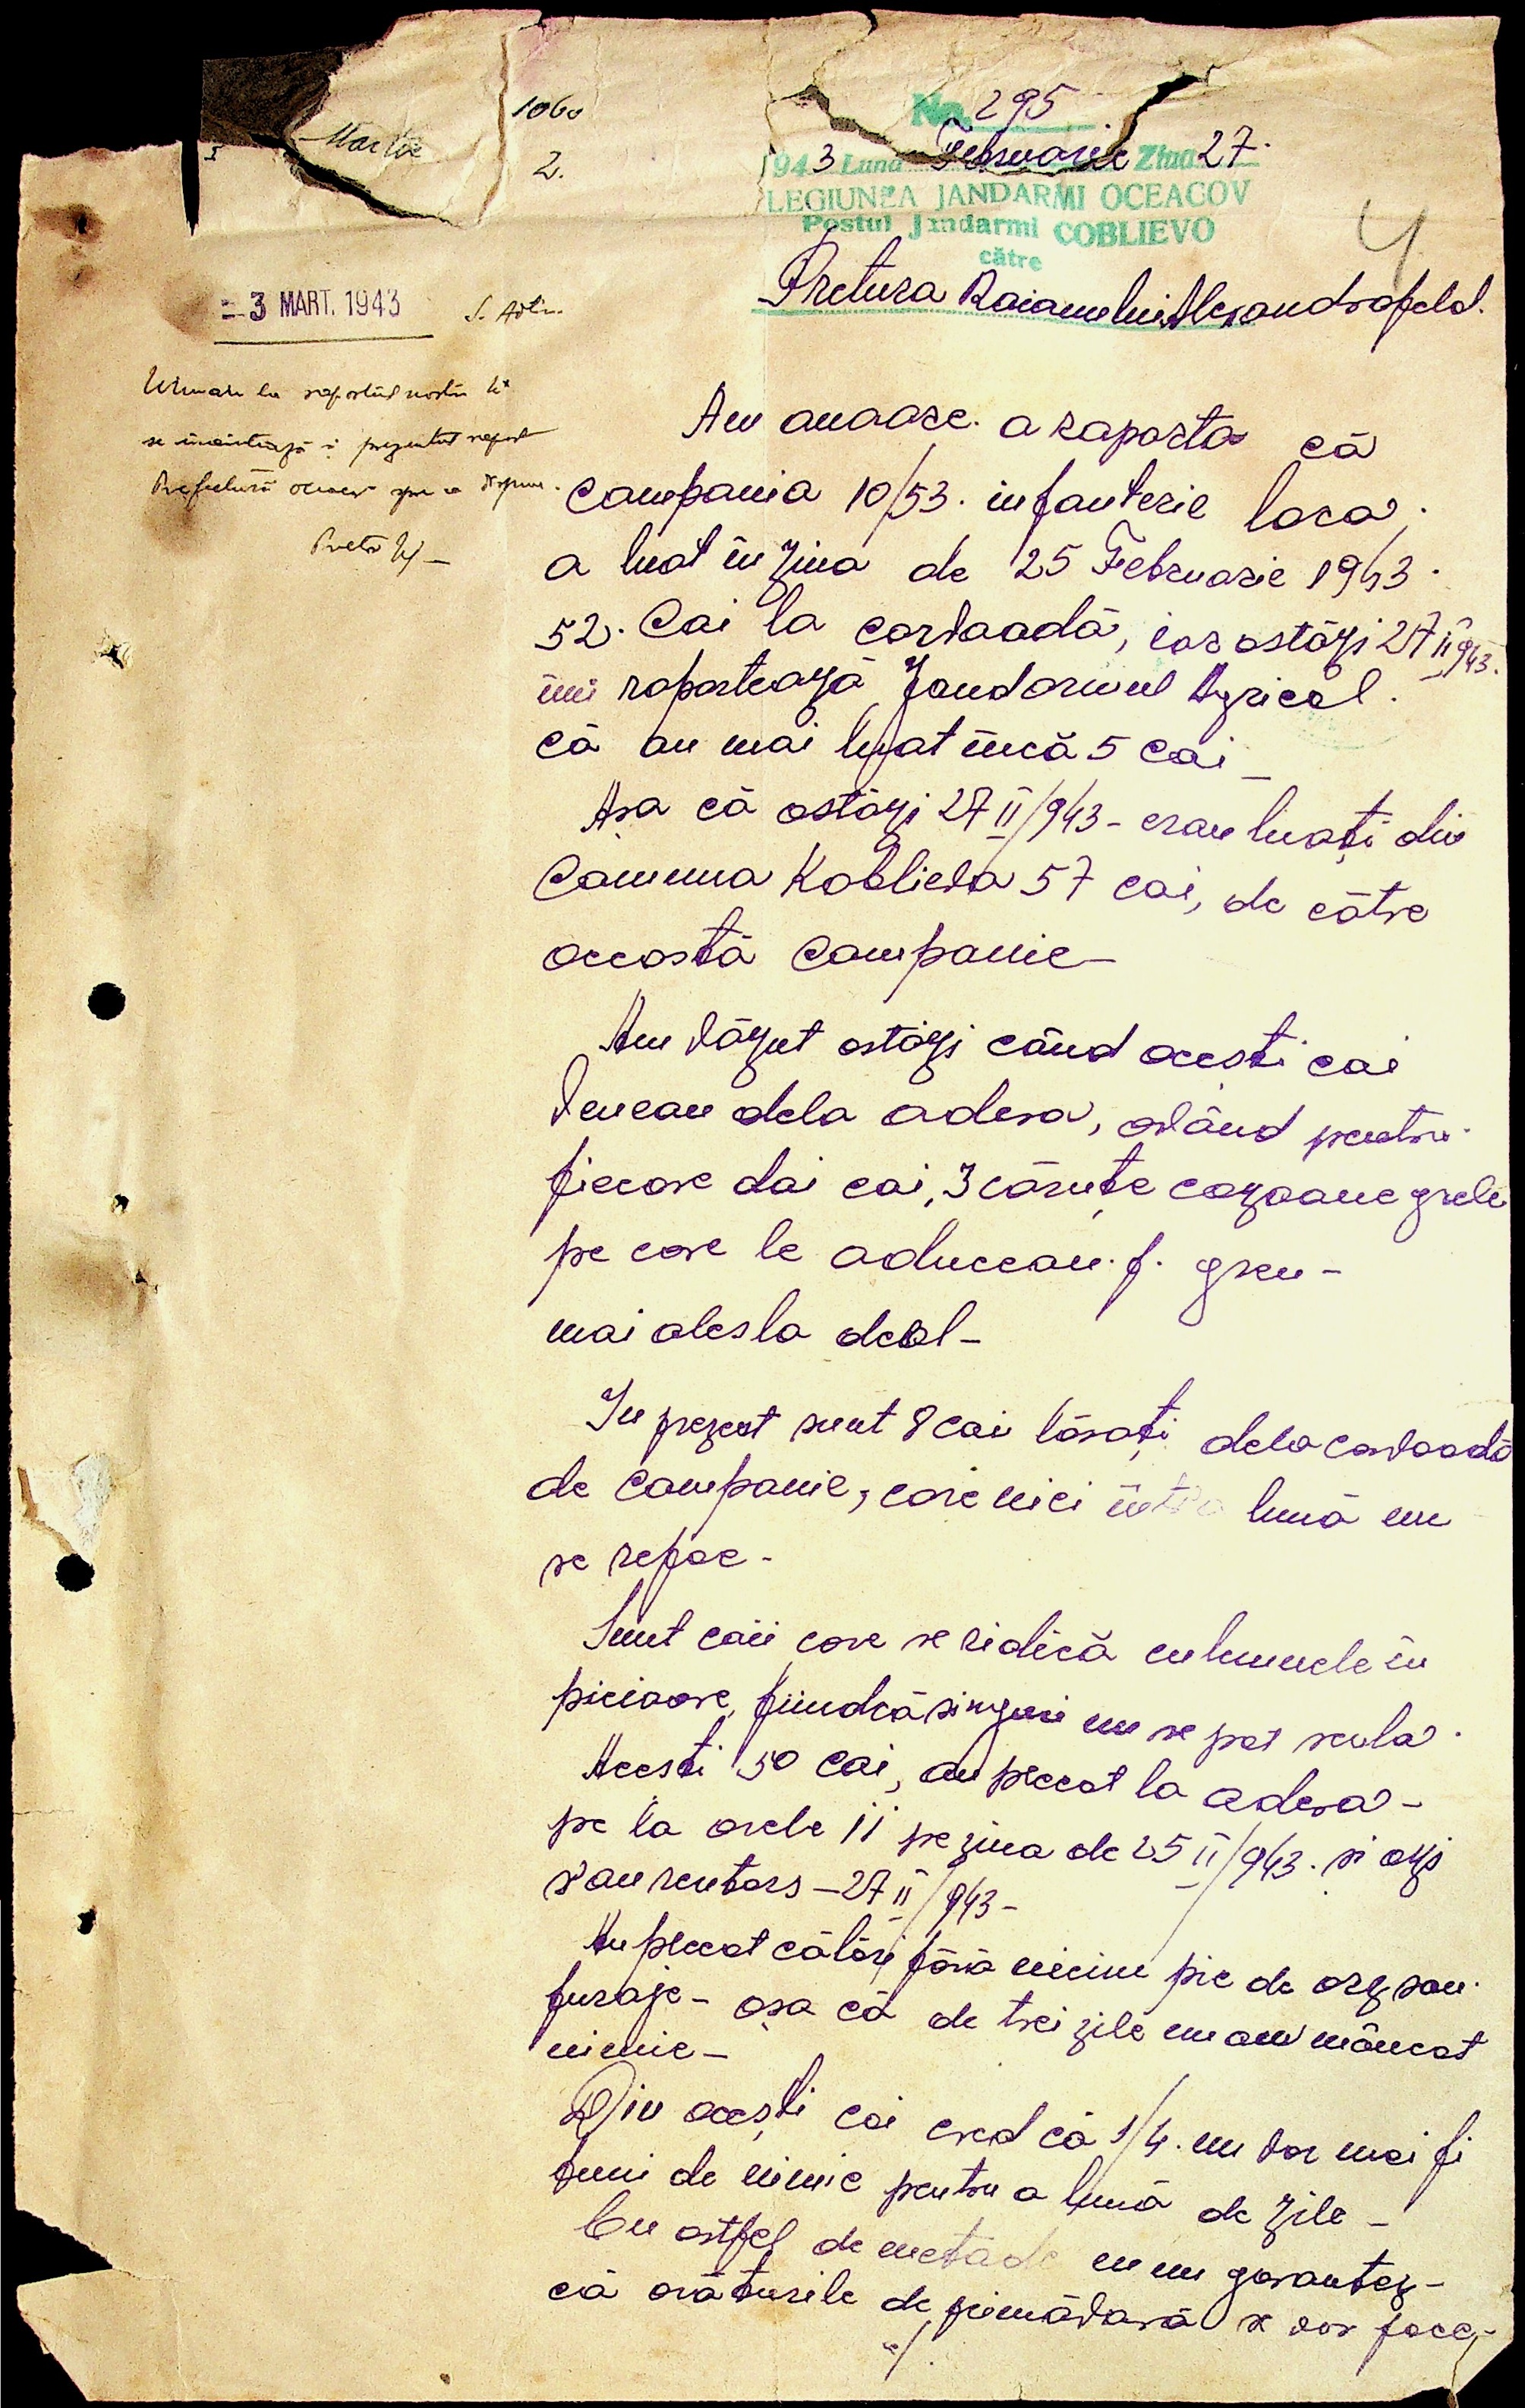 Martie
1060
2.
No. 295
1943 Luna Februarie Ziua 27.
LEGIUNEA JANDARMI OCEACOV
Postul Jandarmi COBLIEVO
către
4
Pretura Raionului Alexandrofeld.
- 3 MART. 1943
Urmare la raportul nostru
se înaintează și prezentul raport
Prefectură spre a dispune.
Pretor
Am onoare. a raporta că
Compania 10/53. infanterie loca.
a luat în ziua de 25 Februarie 1943.
52. Cai la corvoadă, iar astăzi 27 II 943.
îmi raportează Jandarmul Agricol.
că au mai luat încă 5 cai –
Asa că astăzi 27 II/943 – erau luați din
Comuna Koblieva 57 cai, de către
această Companie –
Am văzut astăzi când acesti cai
veneau dela odesa, având pentru
fiecare doi cai, 3 căruțe cazoane grele
pe care le aduceau. f. greu –
mai ales la deal –
In prezent sunt 8 cai lăsați dela corvoadă
de Companie, care nici într'o lună nu
se refac –
Sunt caii care se ridică cu lemnele în
picioare, fiindcă singuri nu se pot scula.
Acesti 50 cai, au plecat la odesa –
pe la orele 11 pe ziua de 25 II/943. si azi
s'au rentors – 27 II/943 –
Au plecat călări fără niciun pic de orz sau
furaje – așa că de trei zile nu au mâncat
nimic –
Din acești cai cred că 1/4. nu vor mai fi
buni de nimic pentru o lună de zile –
Cu astfel de metode eu nu garantez –
că arăturile de primăvară se vor face, –
./.